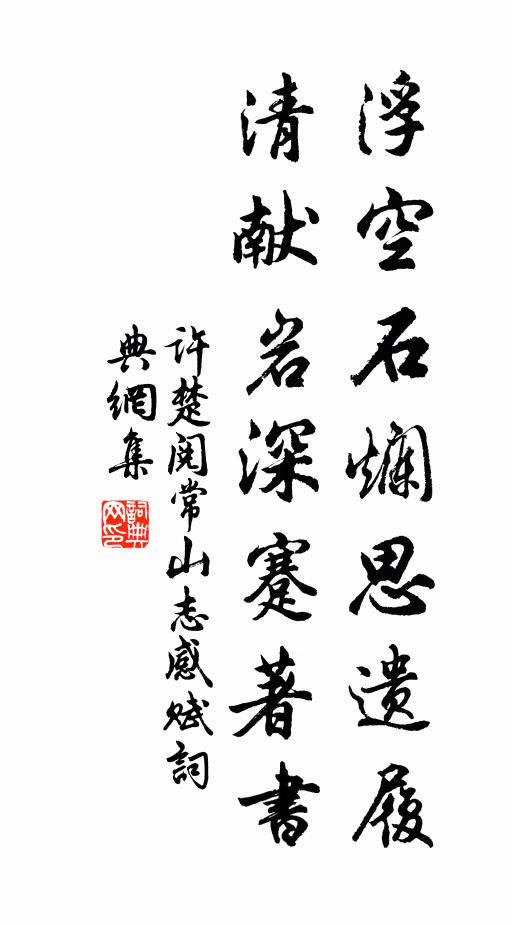 浮空石爛思遺履
清献岩深蹇著書
許楚閱常山志感賦詞
典網集
詞典
网印